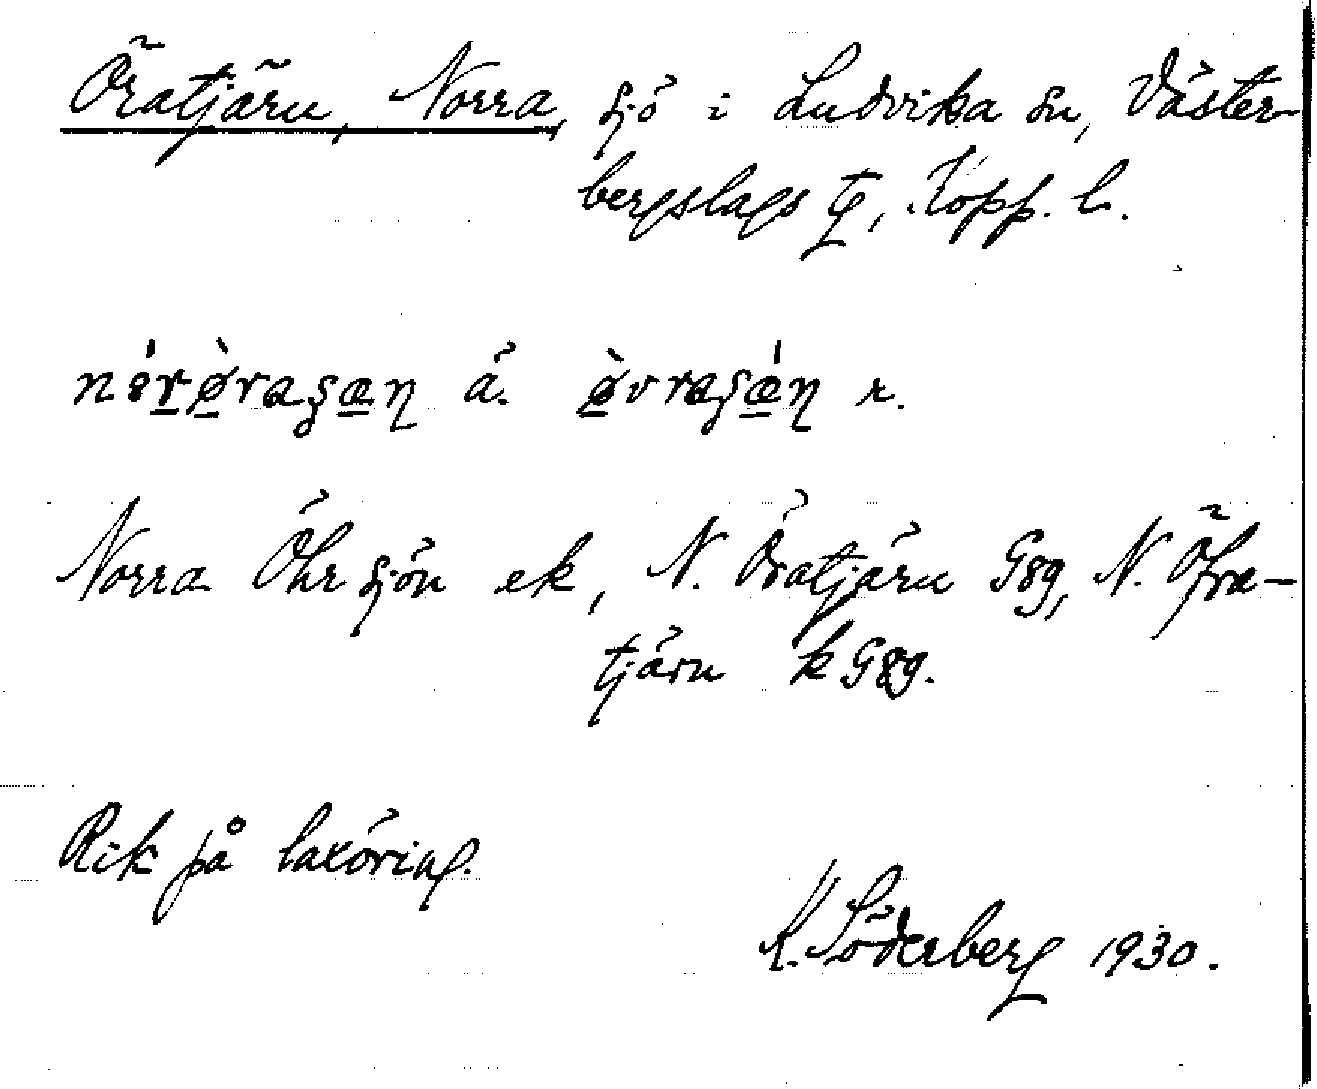 Öratjärn, Norra, sjö i Ludvika sn, Väster-
bergslags tg, Kopp. l.
nórø̀raʂæɳ ä. ø̀vraʂǽɳ r.
Norra Öhrsjön ek, N. Öratjärn Gsg, N. Öfra-
tjärn k Gsg.
Rik på laxöring.
K. Söderberg 1930.